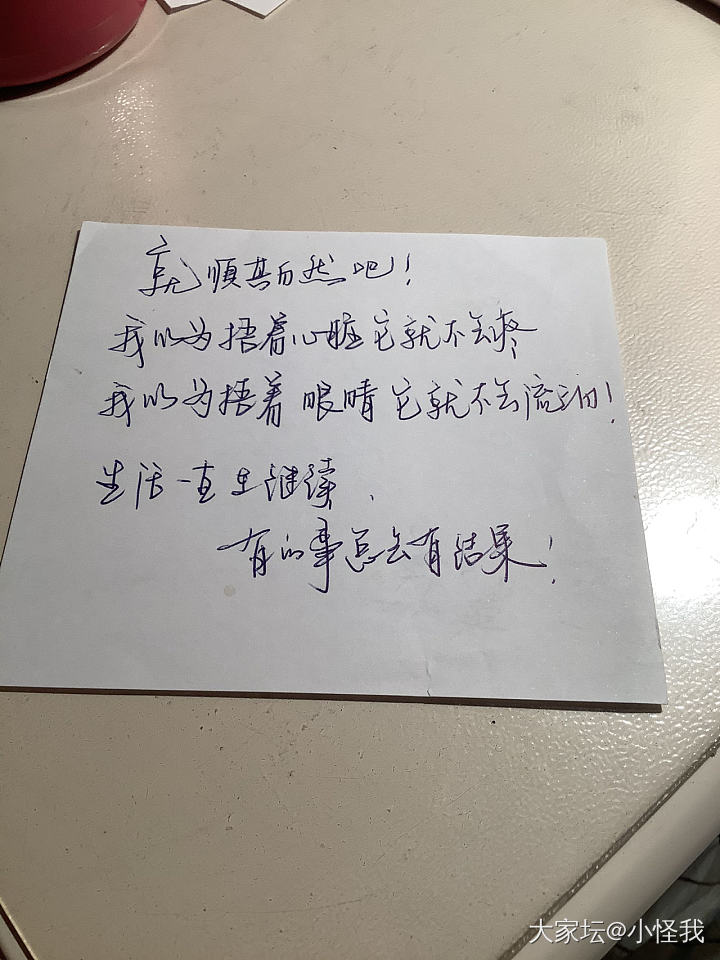 就顺其自然吧！
我以为捂着心脏它就不会疼
我以为捂着眼睛它就不会流泪！
生活一直在继续、
有的事总会有结果！
大家坛@小怪我